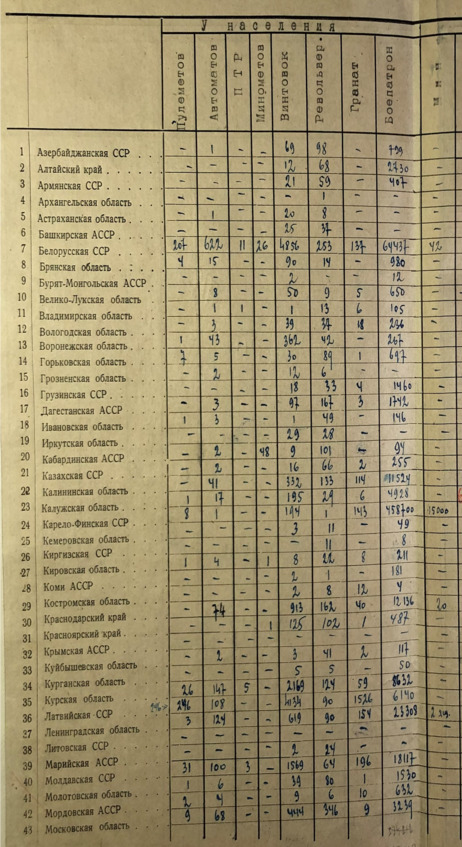 У населения
Пулеметов Автоматов П Т Р Минометов Винтовок Револьвер. Гранат Боепатрон Мин
1 Азербайджанская ССР . . . - 1 - - 69 98 - 799
2 Алтайский край . . . . - - - - 12 68 - 2730
3 Армянская ССР . . . . - - - - 21 59 - 407
4 Архангельская область - - - - - 1 - -
5 Астраханская область . . - 1 - - 20 8 - -
6 Башкирская АССР . . . - - - - 25 37 - -
7 Белорусская ССР . . . . 207 622 11 26 4856 253 137 64437 42
8 Брянская область . . . 4 15 - - 90 14 - 980
9 Бурят-Монгольская АССР - - - - 2 - - 12
10 Велико-Лукская область - 8 - - 50 9 5 650
11 Владимирская область . . - 1 1 - 1 13 6 105
12 Вологодская область . . - 3 - - 39 37 18 236
13 Воронежская область . . 1 43 - - 362 42 - 267
14 Горьковская область . . 7 5 - - 30 89 1 697
15 Грозненская область . . - 2 - - 12 6 - -
16 Грузинская ССР . . . . - - - - 18 33 4 1460
17 Дагестанская АССР . . . - 3 - - 97 167 3 1742
18 Ивановская область . . . 1 3 - - 1 49 - 146
19 Иркутская область . . . - - - - 29 28 - -
20 Кабардинская АССР . . . - 2 - 48 9 101 - 94
21 Казахская ССР . . . . - 2 - - 16 66 2 255
22 Калининская область . . - 41 - - 332 133 114 11524
23 Калужская область . . . 1 17 - - 195 29 6 4928
24 Карело-Финская ССР . . 8 1 - - 194 1 143 458700 15000
25 Кемеровская область . . - - - - 3 11 - 49
26 Киргизская ССР . . . . - - - - - 11 - 8
27 Кировская область . . . 1 4 - 1 8 22 8 211
28 Коми АССР . . . . - - - - 2 1 - 181
29 Костромская область . . - - - - 2 8 12 4
30 Краснодарский край - 74 - - 913 162 40 12136 20
31 Красноярский край . . . - - - 1 125 102 1 487
32 Крымская АССР . . . . - - - - - - - -
33 Куйбышевская область - 2 - - 3 41 2 117
34 Курганская область . . . - - - - 5 5 - 50
35 Курская область . . . . 26 147 5 - 2169 124 59 8632
36 Латвийская ССР . . . . 246 108 - - 4134 90 1526 6140
37 Ленинградская область . . 3 124 - - 619 90 154 23308
38 Литовская ССР . . . . - - - - - - - -
39 Марийская АССР . . . . - - - - 2 24 - -
40 Молдавская ССР . . . . 31 100 3 - 1569 64 196 18117
41 Молотовская область . . . 1 6 - - 39 80 1 1530
42 Мордовская АССР . . . . 2 4 - - 9 6 10 632
43 Московская область . . . 9 68 - - 444 346 9 3239